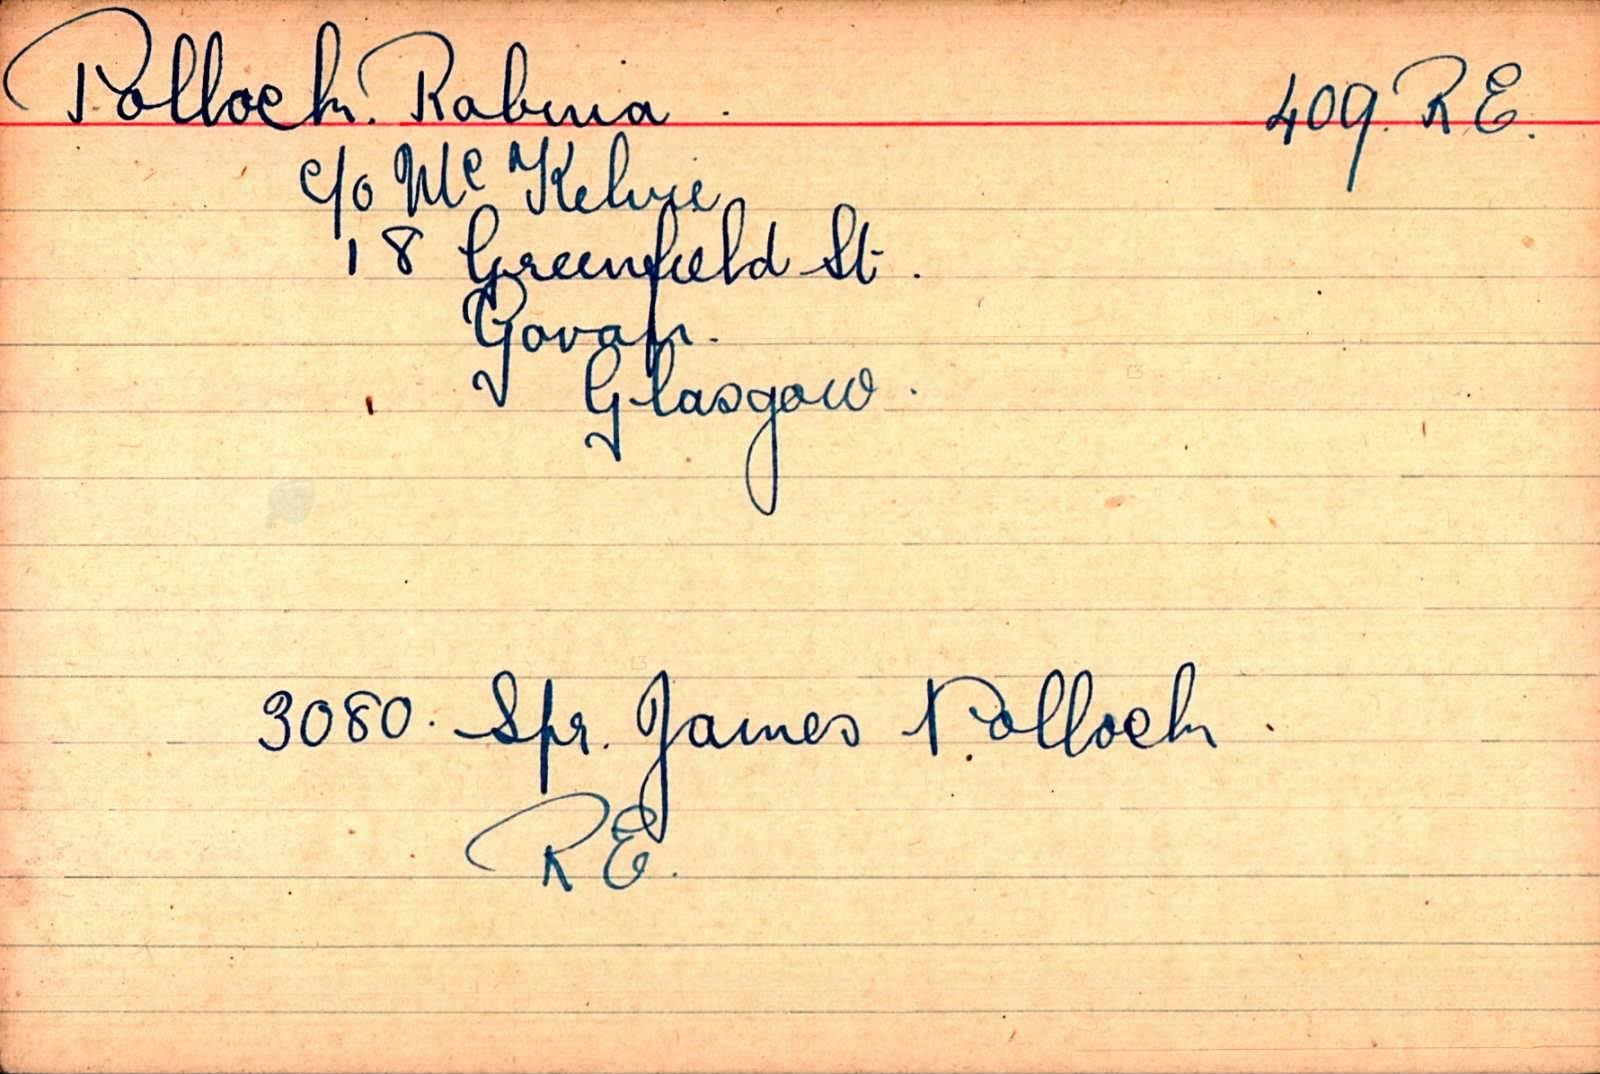 Pollock. Robina. 409. R E.
c/o Mc Kelvie
18 Greenfield St.
Govan.
Glasgow.
3080. Spr. James Pollock.
RE.